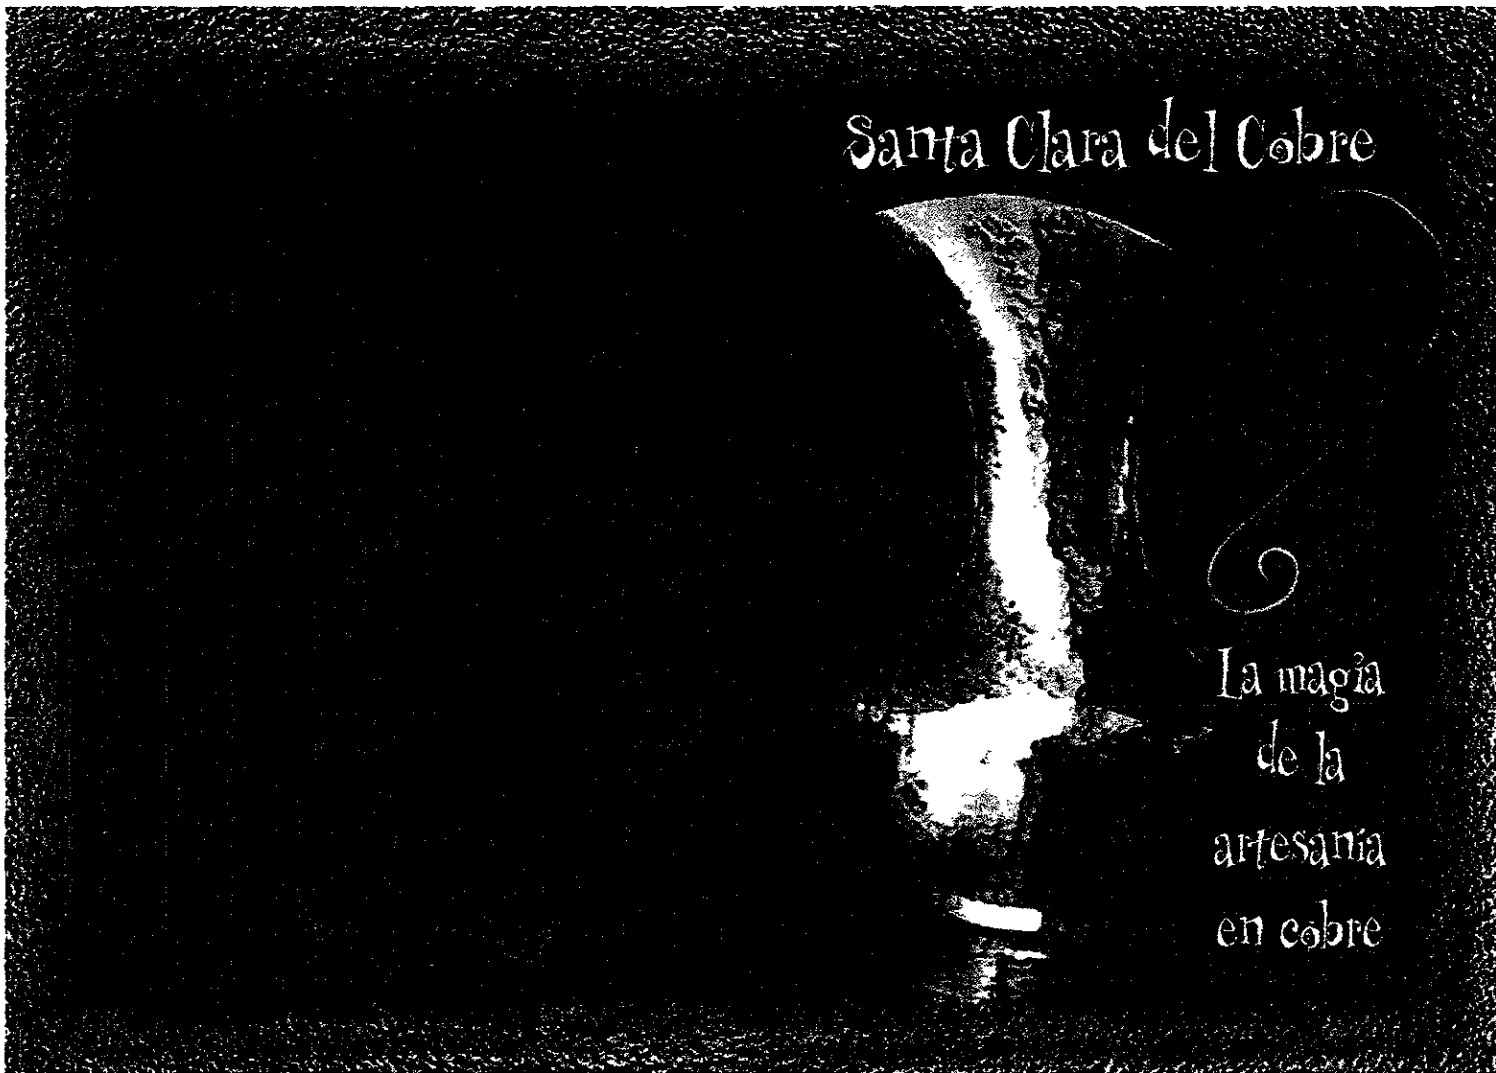 Santa Clara del Cobre
La magia
de la
artesanía
en cobre